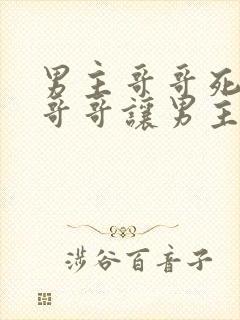 男主哥哥死
哥哥讓男主
涉谷百音子